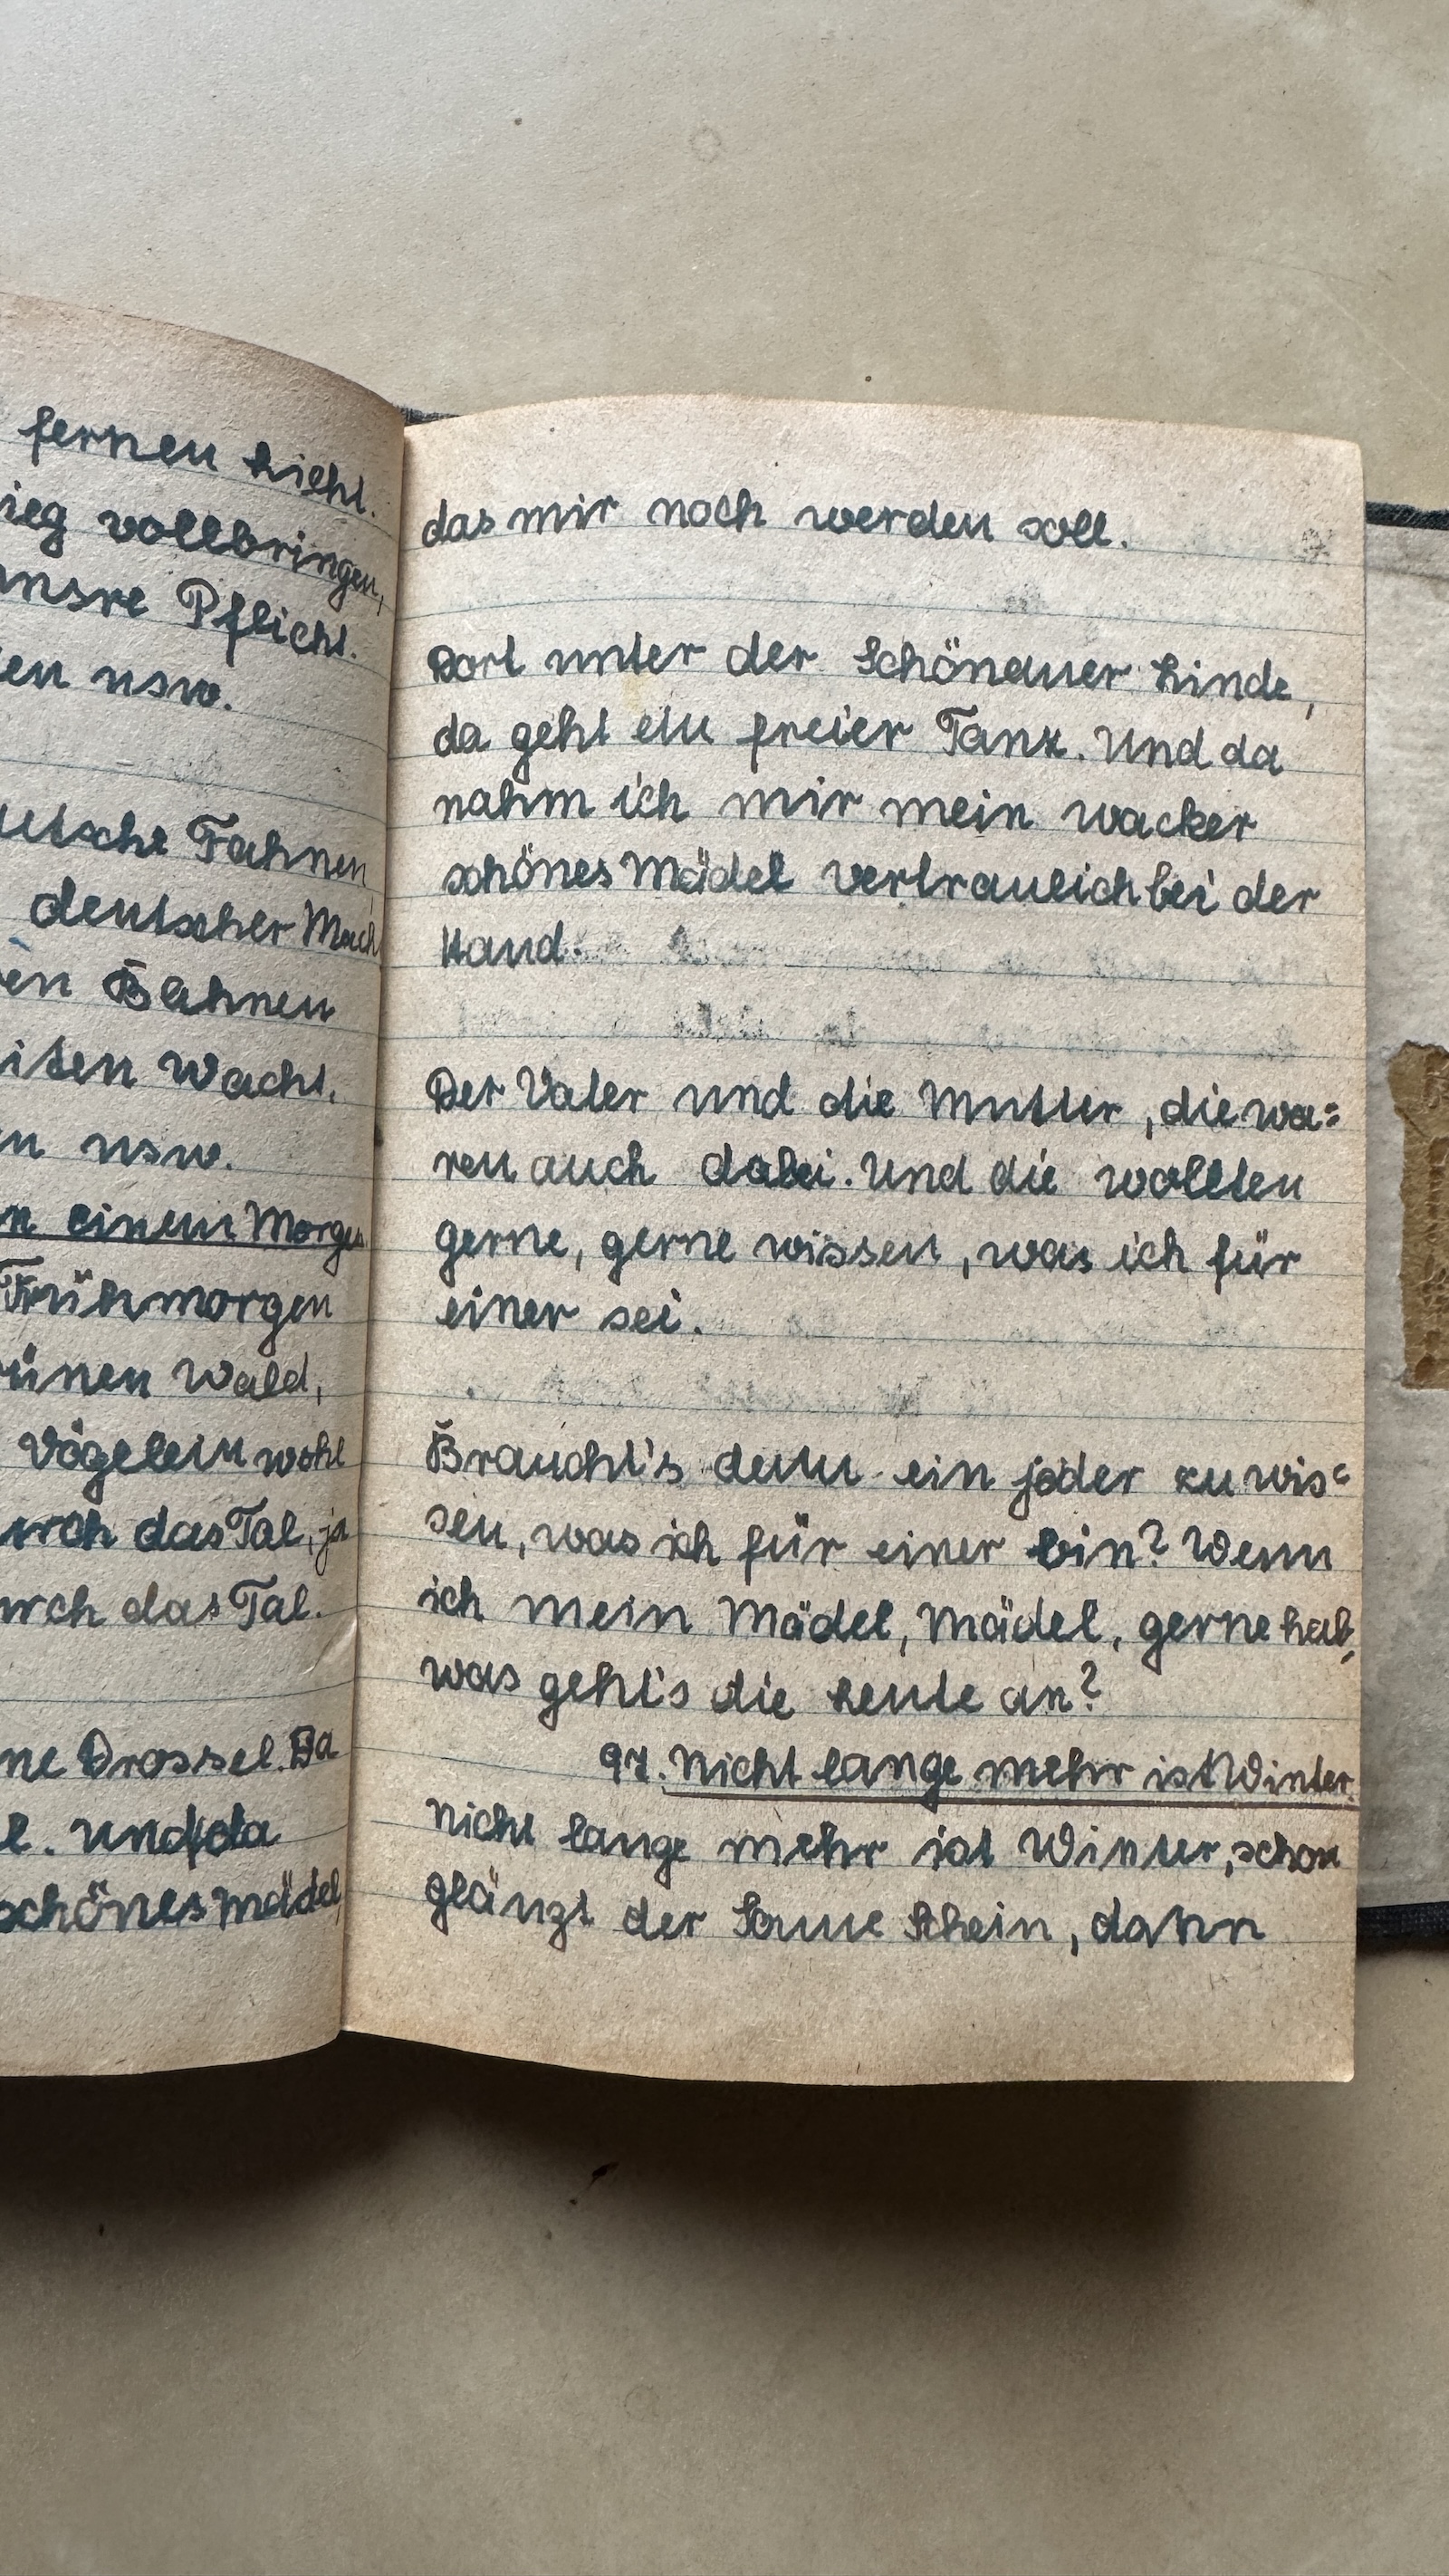 fernen Licht.
ieg vollbringen,
unsre Pflicht.
en usw.
utsche Fahnen
deutscher Mach
en Bahnen
iten Wacht,
n usw.
n einem Morgen
Frühmorgen
ünen Wald,
Vögelein wohl
urch das Tal, ja
urch das Tal.
ne Drossel. Da
l. Und da
schönes Mädel,
das mir noch werden soll.
Dort unter der Schönauer Linde,
da geht ein freier Tanz. Und da
nahm ich mir mein wacker
schönes Mädel vertraulich bei der
Hand.
Der Vater und die Mutter, die wa=
ren auch dabei. Und die wollten
gerne, gerne wissen, was ich für
einer sei.
Braucht's denn ein jeder zu wis=
sen, was ich für einer bin? Wenn
ich mein Mädel, Mädel, gerne hab,
was geht's die Leute an?
97. Nicht lange mehr ist Winter.
Nicht lange mehr ist Winter, schon
glänzt der Sonne Schein, dann